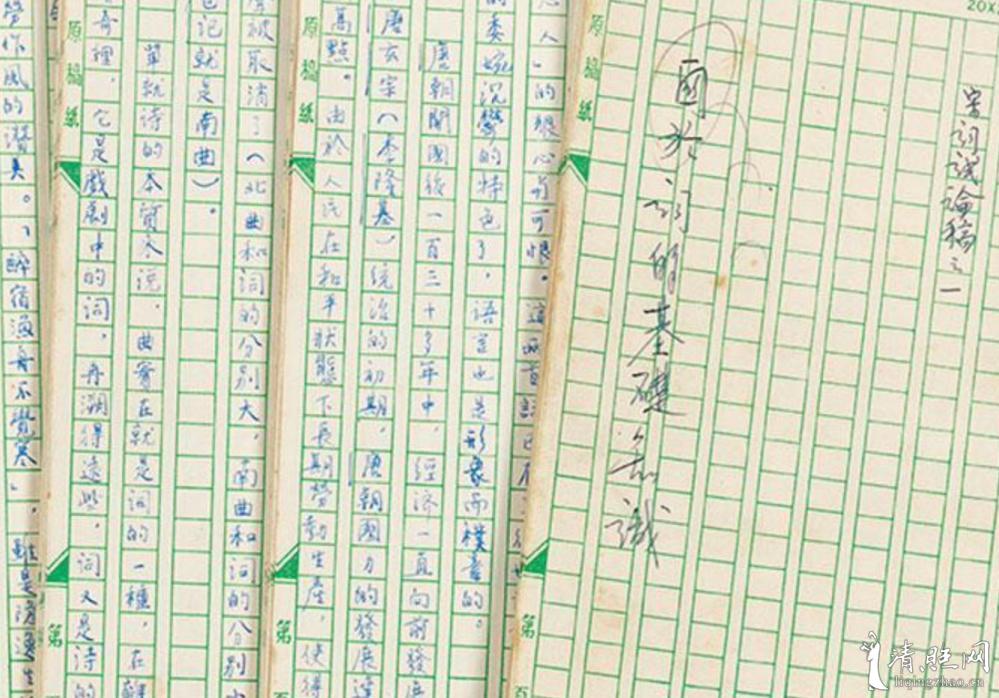 20X
宋词试论稿之一
関於词的基礎知識
原稿紙
第
人」的狠心
可恨。這两首
的委婉沉鬱的特色了,語言也是形象而樸素的。
唐朝開國後一百三十多年中,經济一直向前發
唐玄宗(李隆基)統治的初期,唐朝國力的發展達
高點。由於人民在和平狀態下長期勞動生產,使得
原稿紙
第
被取消了(北曲和詞的分别大,南曲和词的分别
記就是南曲)。
單就诗的本質來说,曲實在就是词的一種,在
奇裡,它是戲劇中的词,再溯得遠些,词又是诗的
原稿紙
第
作風的
「醉宿漁舟不覺寒」,雖是浪漫生
清旺网
liqingzhao.cn